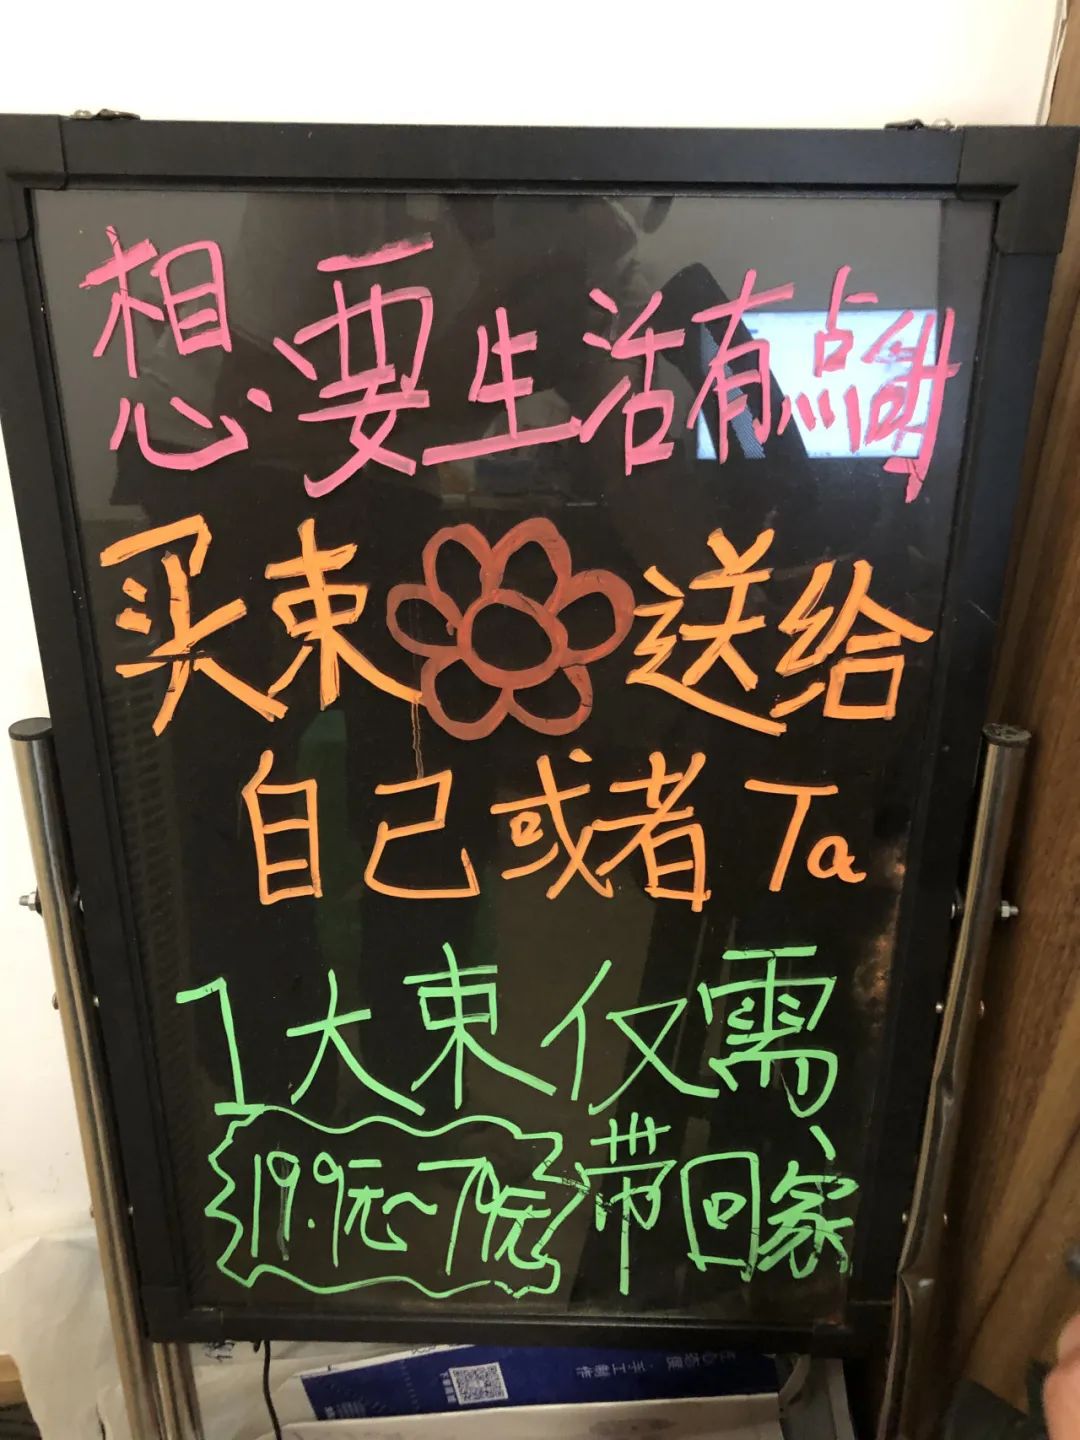 想要生活有点甜
买束送给
自己或者Ta
1大束仅需
19.9元~79元带回家
手工制作